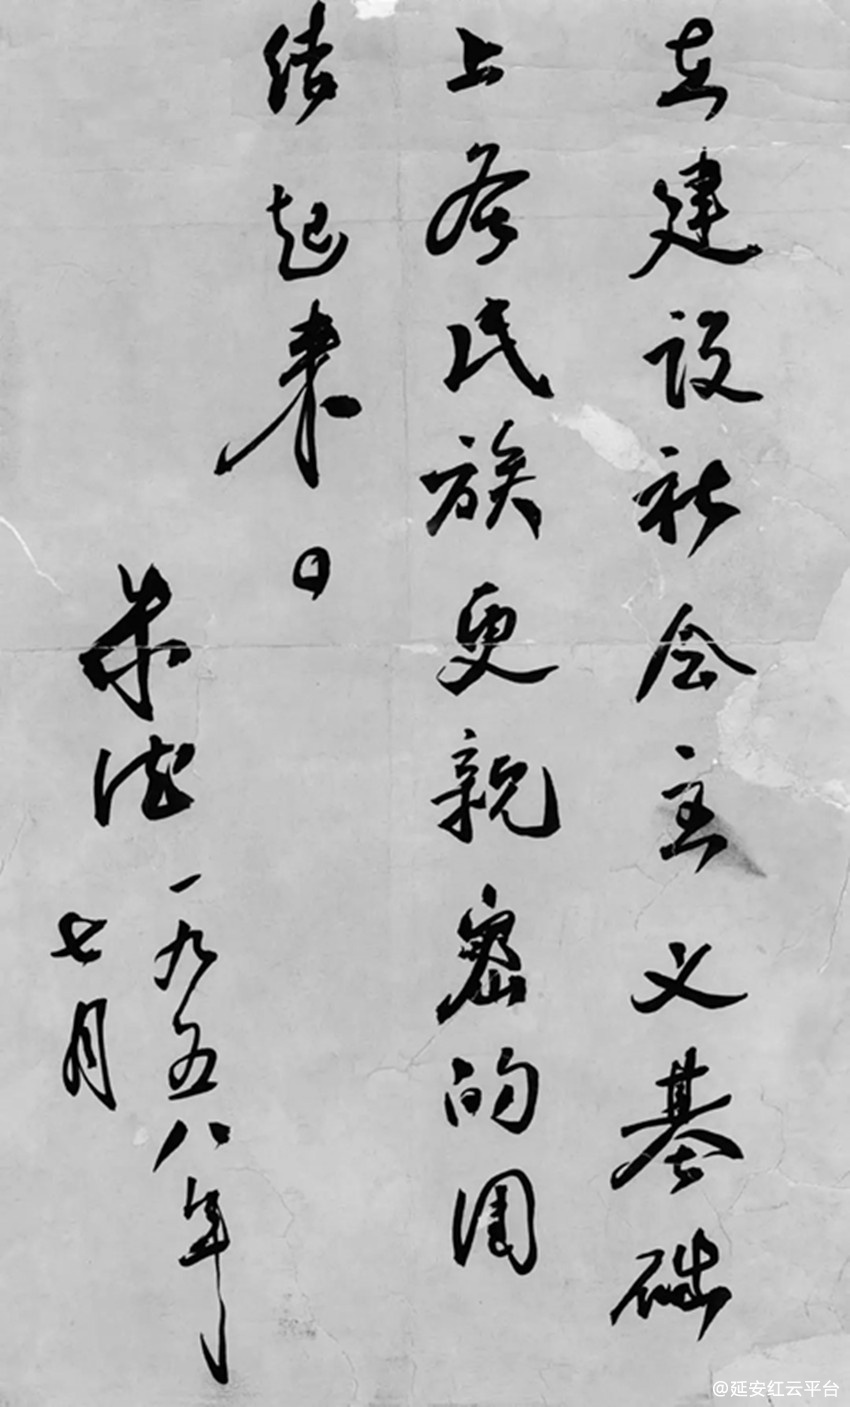 在建设社会主义基础
上各民族更亲密的团
结起来。
朱德
一九五八年
七月
@延安红云平台